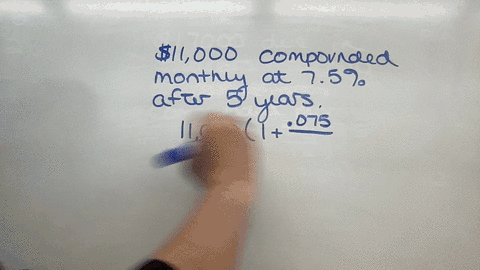 $11,000 compounded
monthly at 7.5%
after 5 years.
11, (1+ .075